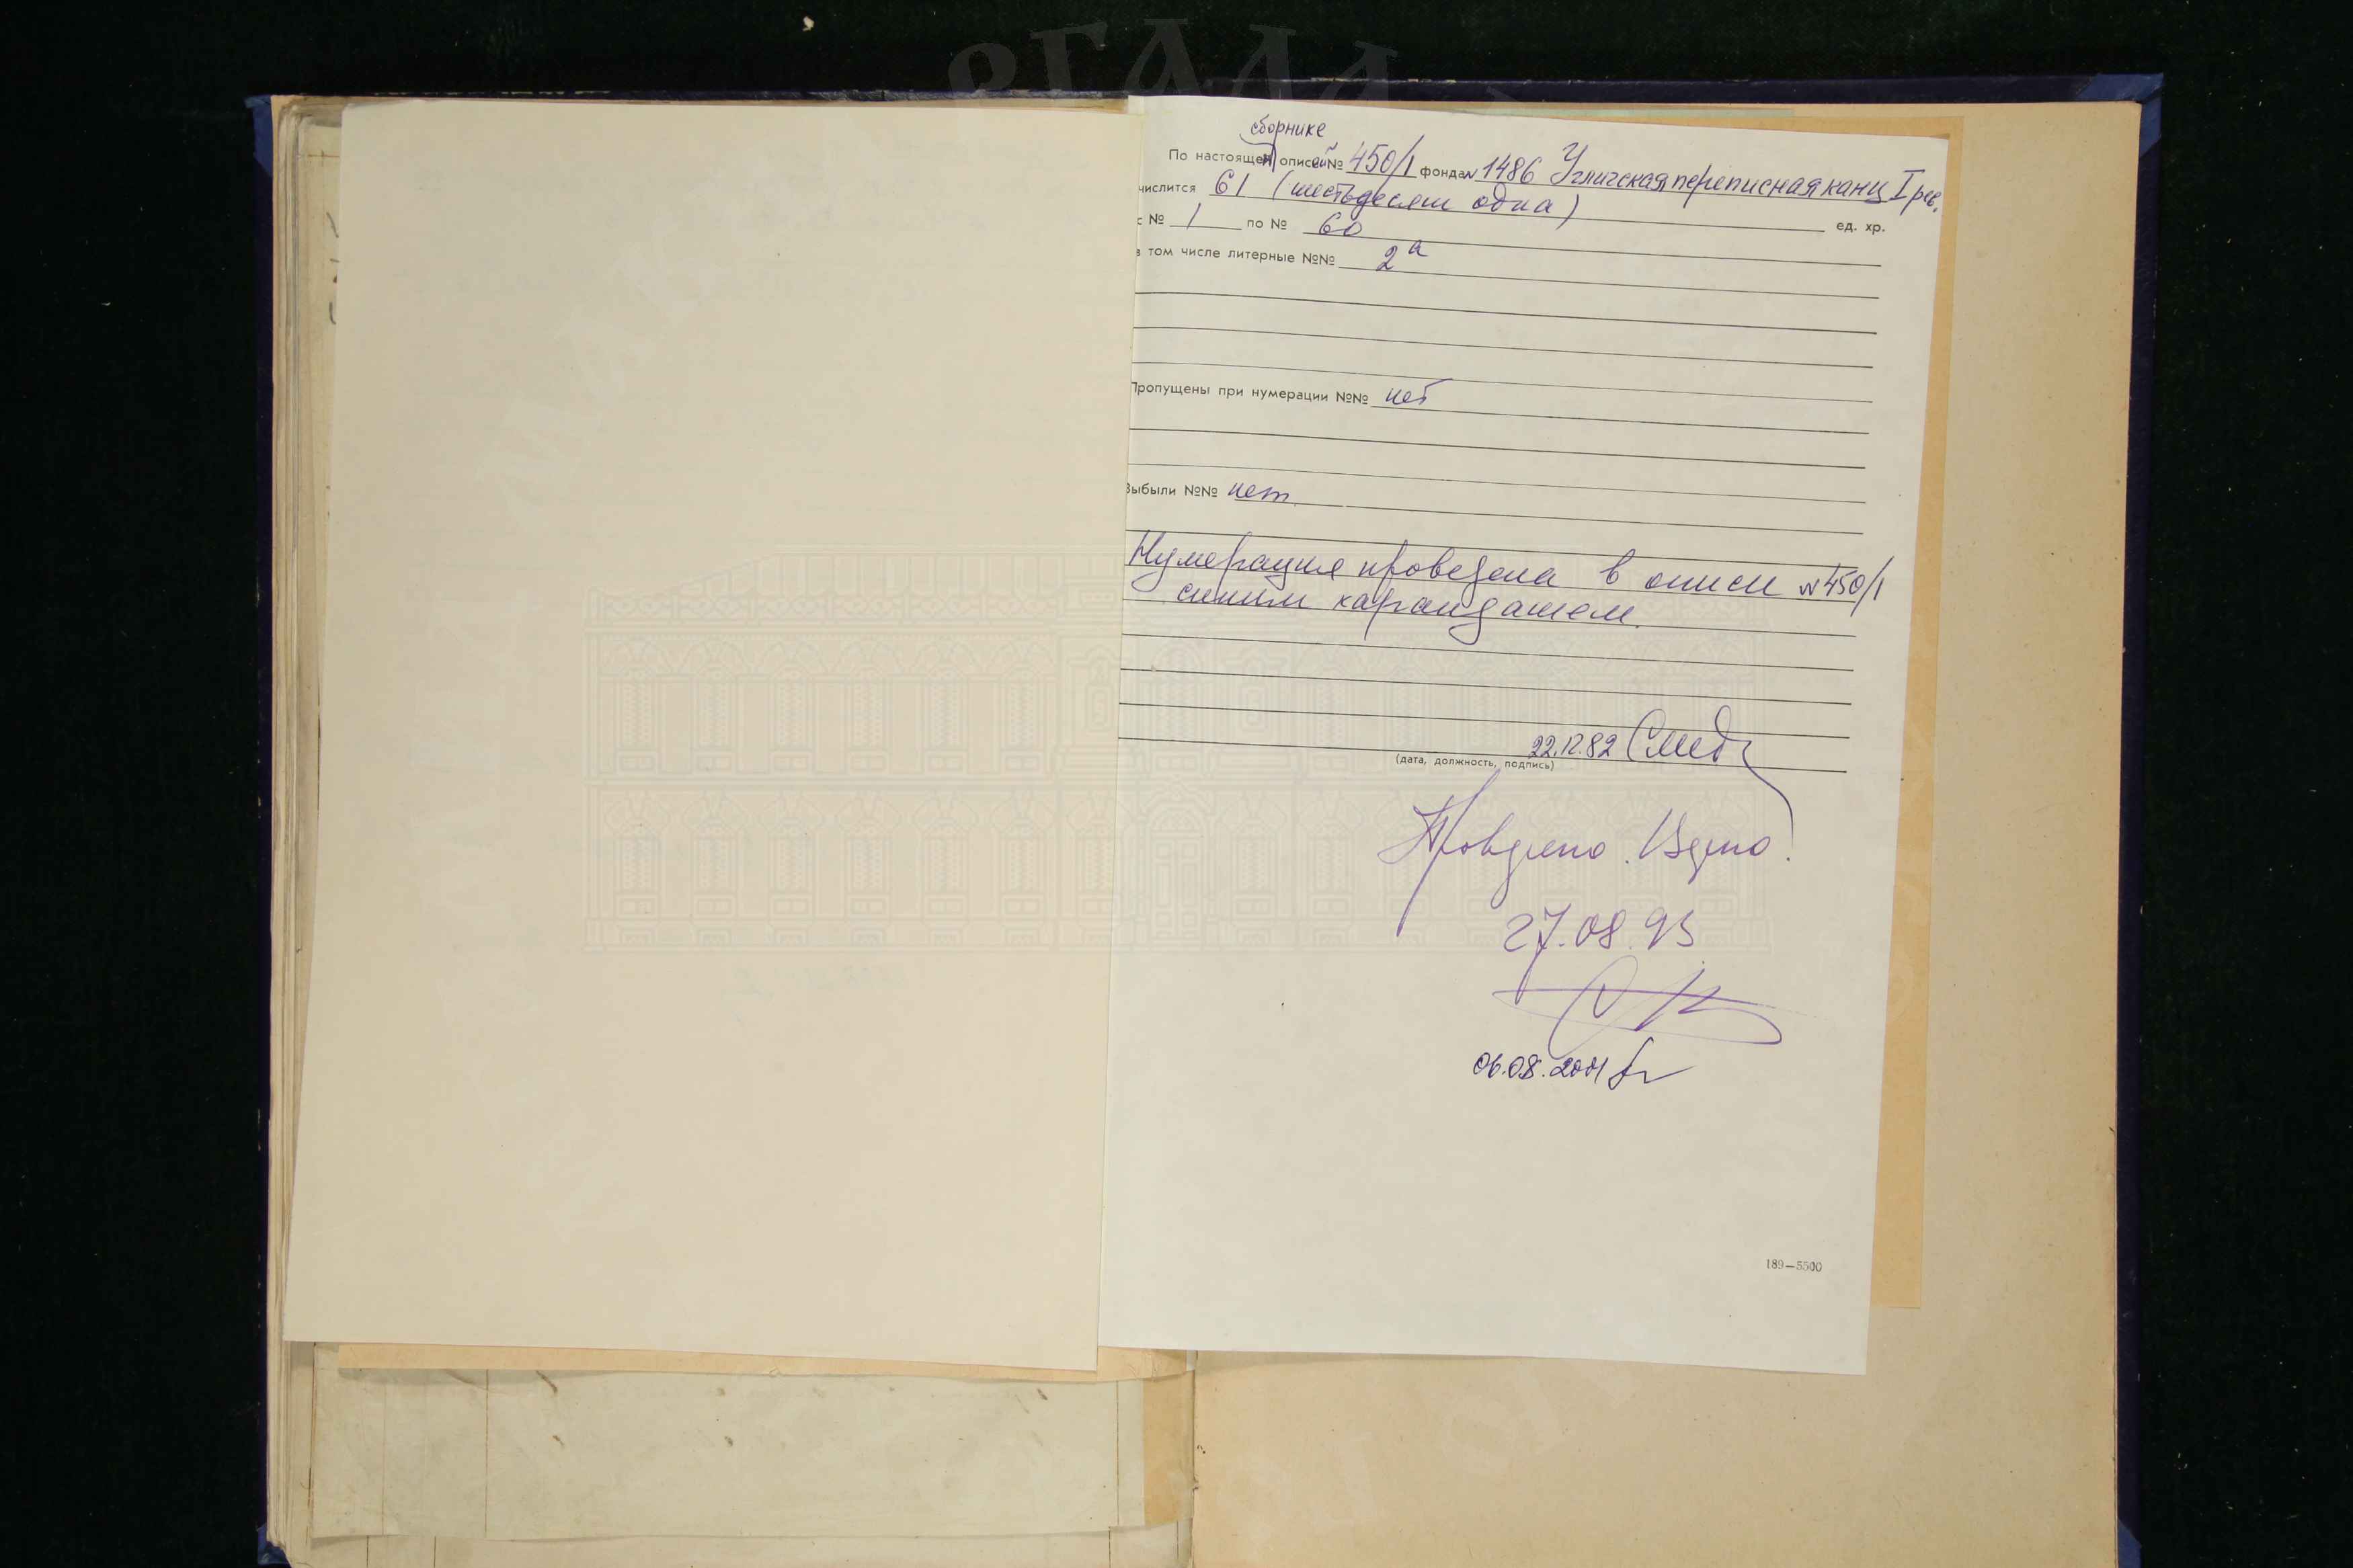 РГАДА
сборнике
По настоящем описей № 450/1 фонда № 1486 Угличская переписная канц I рев.
числится 61 (шестьдесят одна) ед. хр.
с № 1 по № 60
в том числе литерные №№ 2а
Пропущены при нумерации №№ нет
Выбыли №№ нет
Нумерация проведена в описи №450/1
синим карандашем.
22.12.82
(дата, должность, подпись)
Проверено. Верно.
27.08.93
06.08.2001
189—5500